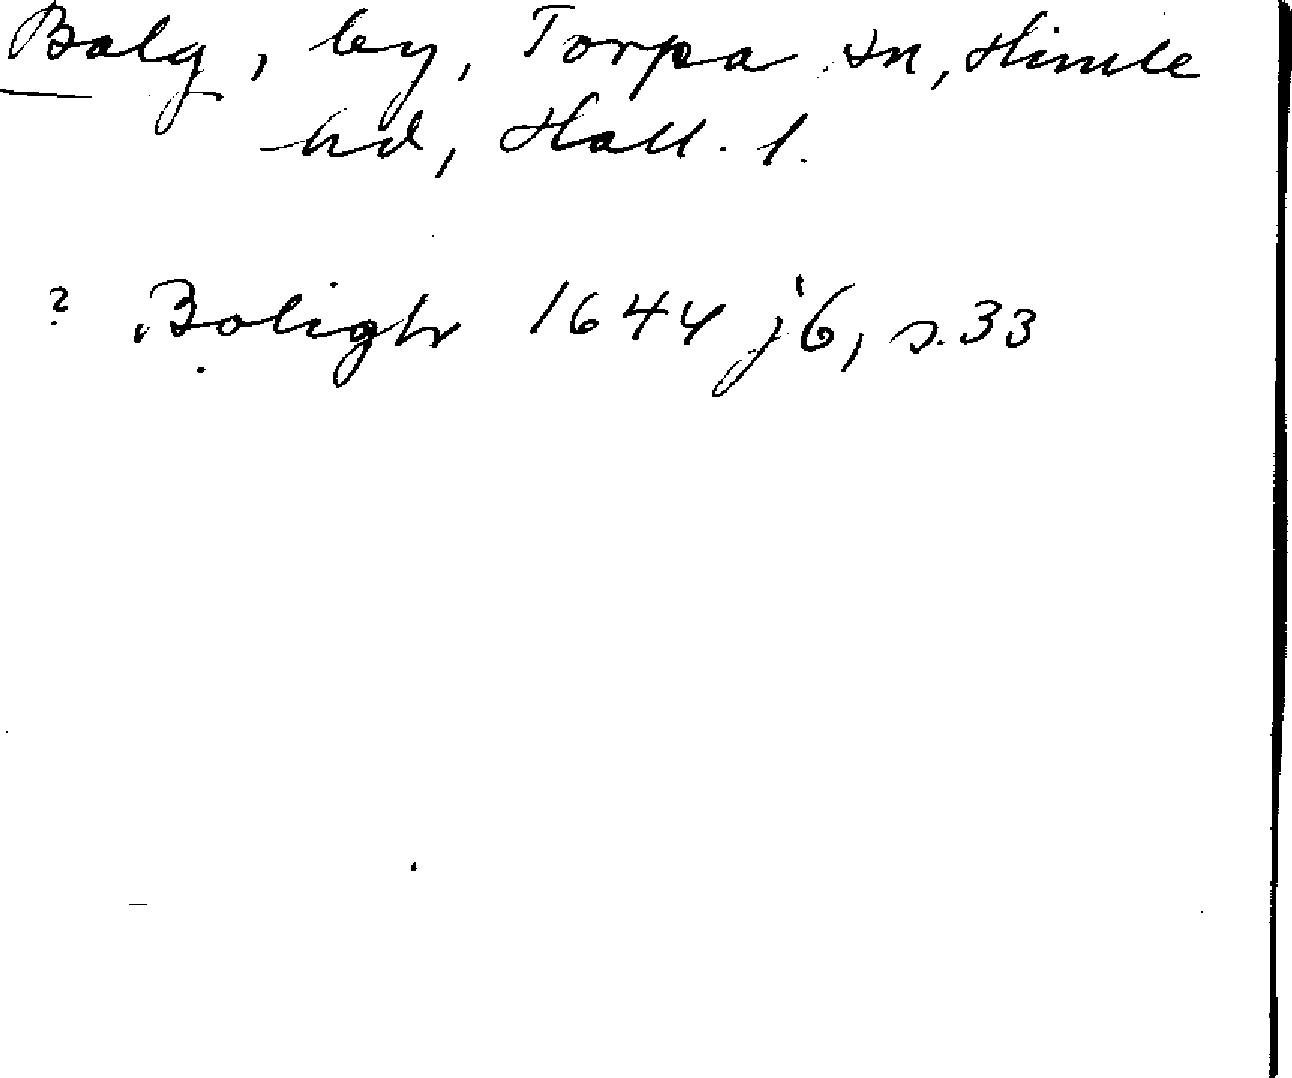 Balg, by, Torpa sn, Himle
hd, Hall. l.
? Boligh 1644 j6, s. 33